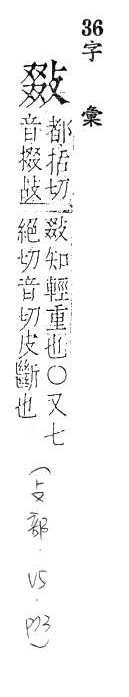 36字彙
敠
都括切敠知輕重也〇又七
音掇敁絕切音切皮斷也
(攴部．VS．P73)